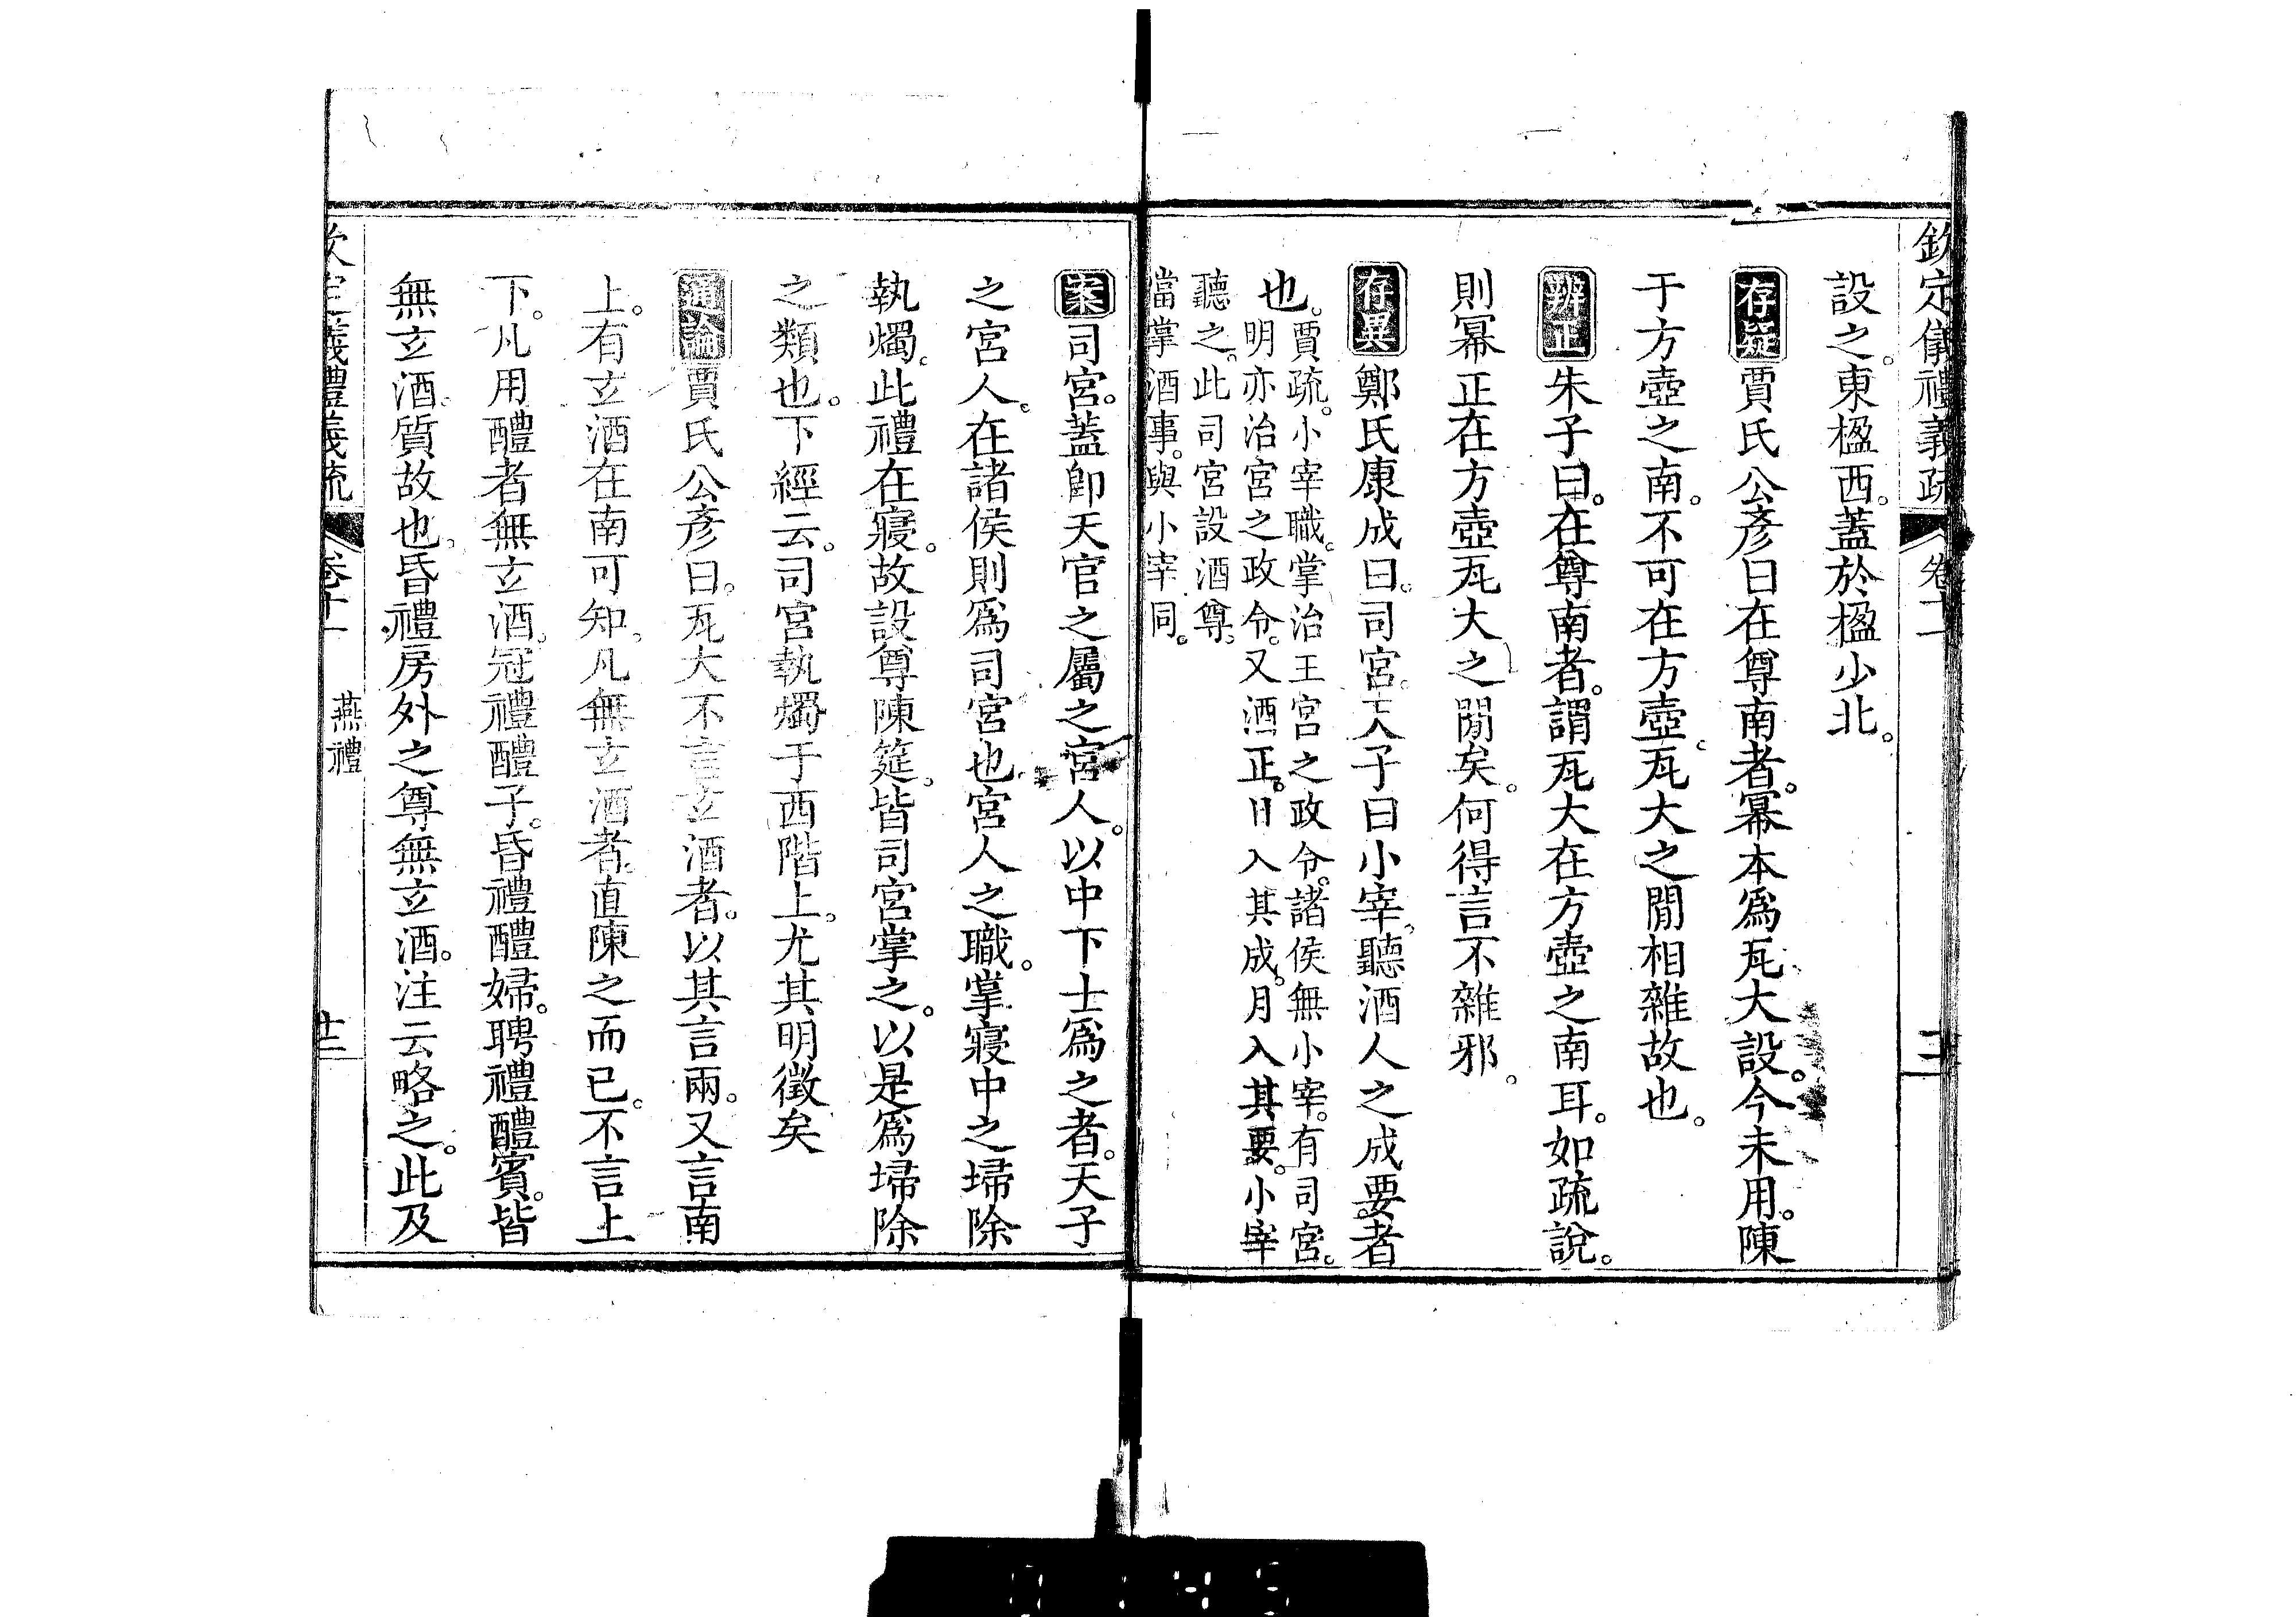 欽定儀禮義疏 卷十一
設之。東楹西。蓋於楹少北。
存疑賈氏公彥曰在尊南者。冪本爲瓦大設。今未用。陳
于方壺之南。不可在方壺。瓦大之閒相雜故也。
辨正朱子曰。在尊南者。謂瓦大在方壺之南耳。如疏說。
則冪正在方壺瓦大之閒矣。何得言不雜邪。
存異鄭氏康成曰。司宮。天子曰小宰。聽酒人之成要。者
也。賈疏。小宰職。掌治王宮之政令。諸侯無小宰。有司宮。
明亦治宮之政令。又酒正。日入其成。月入其要。小宰
聽之。此司宮設酒尊。
當掌酒事。與小宰同。
案司宮。蓋卽天官之屬之宮人。以中下士爲之者。天子
之宮人。在諸侯則爲司宮也。宮人之職。掌寢中之埽除
執燭。此禮在寢。故設尊陳筵。皆司宮掌之。以是爲埽除
之類也。下經云。司宮執燭于西階上。尤其明徵矣
通論賈氏公彥曰。瓦大不言玄酒者。以其言兩。又言南
上。有玄酒在南可知。凡無玄酒者。直陳之而已。不言上
下。凡用醴者無玄酒。冠禮醴子。昏禮醴婦。聘禮醴賓。皆
無玄酒。質故也。昏禮房外之尊無玄酒。注云略之。此及
義禮義疏 卷十一 燕禮